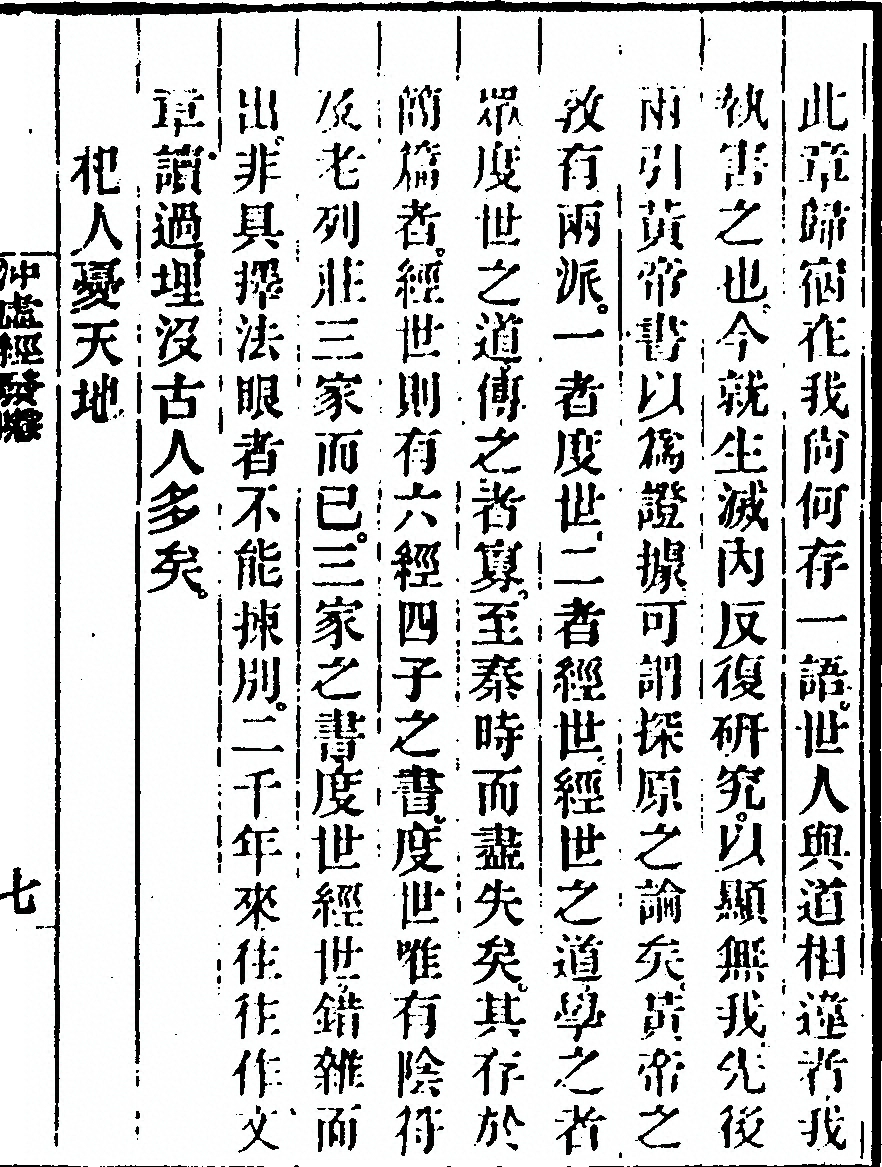 此章歸宿在我尚何存一語。世人與道相違者我
執害之也。今就生滅內反復研究。以顯無我。先後
兩引黃帝書以爲證據可謂探原之論矣。黃帝之
敎有兩派。一者度世、二者經世。經世之道、學之者
眾、度世之道、傳之者寡。至秦時而盡失矣。其存於
簡篇者。經世則有六經四子之書。度世唯有陰符
及老列莊三家而已。三家之書、度世經世、錯雜而
出。非具擇法眼者不能揀別。二千年來往往作文
章讀過。埋沒古人多矣。
杞人憂天地
沖虛經發隱
七